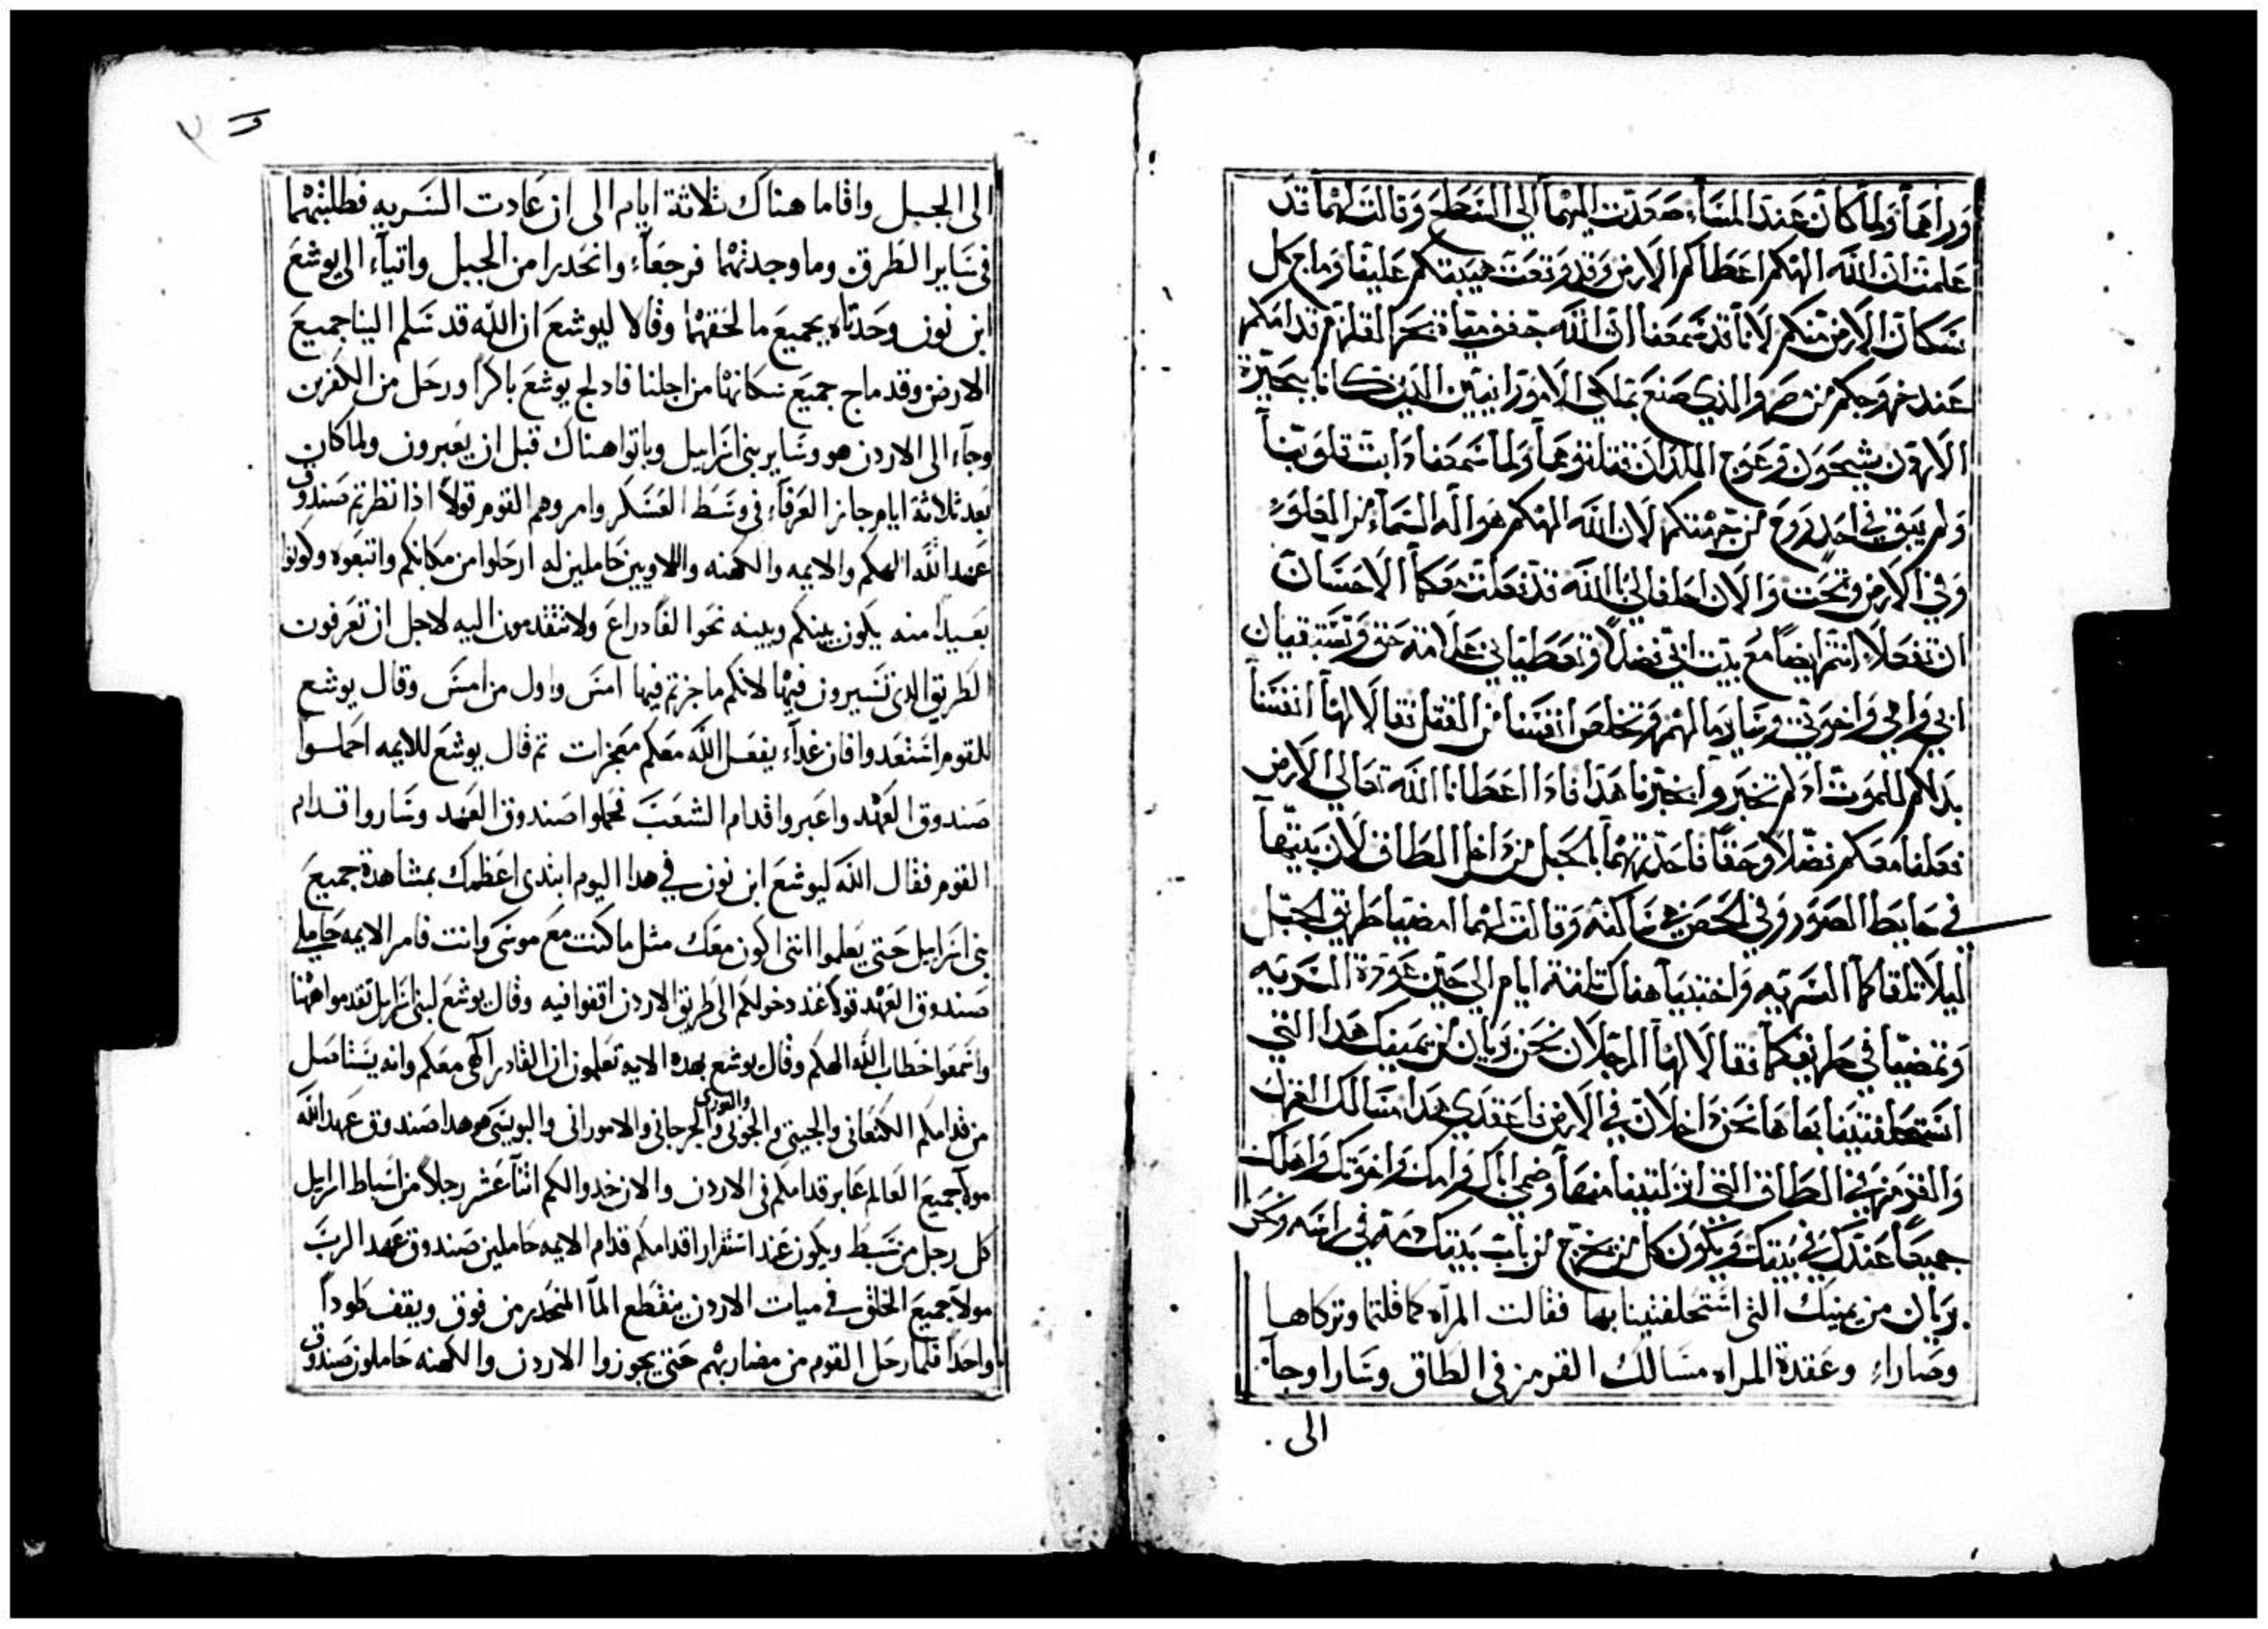 وراهما ولما كان عند المساء صعدت اليهما الى السطح وقالت لهما قد
علمت ان الله الهكم اعطاكم الارض وقد وقعت هيبتكم علينا وماج كل
سكان الارض منكم لانا قد سمعنا ان الله جفف مياة بحر القلزم قدامكم
عند خروجكم من مصر والذي صنع بملكي الامورانيين الذين كانا بحيزة
الاردن سيحون وعوج اللذان قتلتوهما ولما سمعنا دابت قلوبنا
ولم يبق في احد روح من جهتكم لان الله الهكم هو اله السماء من العلو
وفي الارض وتحت والان احلفا لي بالله قد فعلت معكما الاحسان
ان تفعلا انتم ايضا مع بيت ابي فضلا وتعطياني علامة حق وتستبقيان
ابي وامي واخوتي وساير مالهم وتخلص انفسنا من القتل فقالا لها انفسنا
بدلكم للموت اد لم تخبروا بخبرنا هدا فادا اعطانا الله تعالى الارض
فعلنا معكم فضلا وحقا فاحدرتهما بالحبل من داخل الطاق لان بيتها
في حايط الصور وفي الحصن هي ساكنه وقالت لهما امضيا طريق الجبل
ليلا تلقاكما السريه واختبيا هناك تلتة ايام الى حين عودة السريه
وتمضيا في طريقكما فقالا لها الرجلان نحن بريان من يمينك هدا التي
استحلفتينا بها ها نحن داخلان في الارض فاعقدي هدا مسالك الغزل
والقرمز في الطاق التي انزلتينا منها وضمي اباك وامك واخوتك واهلك
جميعا عندك في بيتك ويكون كل من يخرج من باب بيتك دمه في راسه ونحن
بريان من يمينك التي استحلفتينا بها فقالت المراه كما قلتما وتركاها
وصاراء وعقدة المراه مسالك القرمز في الطاق وسارا وجاء
الى
الى الجبل واقاما هناك ثلاثة ايام الى ان عادت السريه فطلبتهما
في ساير الطرق وما وجدتهما فرجعاء وانحدرا من الجبل واتياء الى يوشع
ابن نون وحدتاه بجميع ما لحقهما وقالا ليوشع ان الله قد سلم الينا جميع
الارض وقد ماج جميع سكانها من اجلنا فادلج يوشع باكرا ورحل من الكفرين
وجاء الى الاردن هو وساير بني اسراييل وباتوا هناك قبل ان يعبرون ولما كان
بعد ثلاثة ايام جاز العرفاء في وسط العسكر وامروهم القوم قولا اذا نظرتم صندوق
عهد الله الهكم والايمه والكهنه واللاويين حاملين له ارحلوا من مكانكم واتبعوه وكونوا
بعيدا منه يكون بينكم وبينه نحوا الفا دراع ولا تتقدمون اليه لاجل ان تعرفون
الطريق الذي تسيرون فيها لانكم ما جزتم فيها امس واول من امس وقال يوشع
للقوم استعدوا فان غداء يفعل الله معكم معجزات تم قال يوشع للايمه احملوا
صندوق العهد واعبروا قدام الشعب فحملوا صندوق العهد وساروا قدام
القوم فقال الله ليوشع ابن نون في هدا اليوم ابتدي اعظمك بمشاهدة جميع
بني اسراييل حتى يعلموا انني اكون معك مثل ما كنت مع موسى وانت فامر الايمه حاملي
صندوق العهد قولا عند دخولكم الى طريق الاردن اقفوا فيه وقال يوشع لبني اسراييل تقدموا ههنا
واسمعوا خطاب الله الهكم وقال يوشع بهده الايه تعلمون ان القادر الحي معكم وانه يستاصل
من قدامكم الكنعاني والحيتي والحوني والفوري والجرجاني والاموراني واليوبسي هو هدا صندوق عهد الله
مولا جميع العالم عابر قدامكم في الاردن والان خدوا لكم اثنا عشر رجلا من اسباط اسراييل
كل رجل من سبط ويكون عند استقرار اقدامكم قدام الايمه حاملين صندوق عهد الرب
مولا جميع الخلق في ميات الاردن ينقطع الما المنحدر من فوق ويقف طودا
واحدا فلما رحل القوم من مضاربهم حتى يجوزوا الاردن والكهنه حاملون صندوق